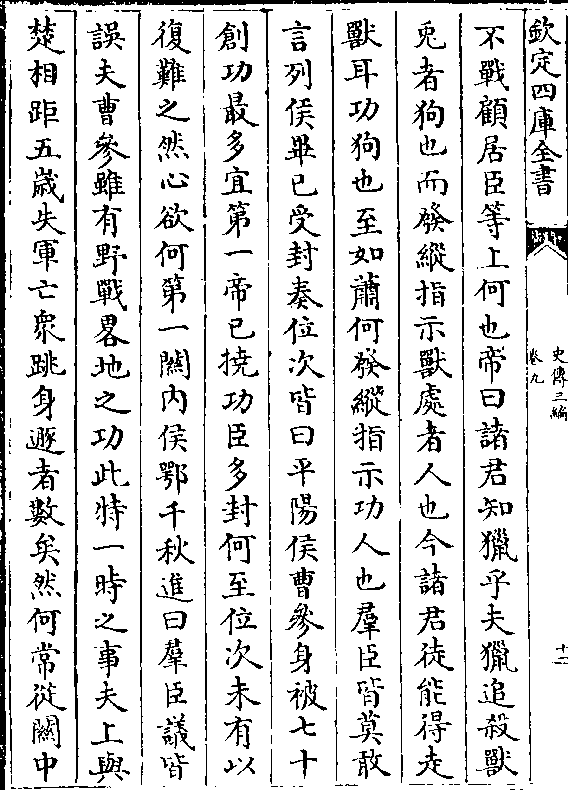 欽定四庫全書
史傳三編
卷九
十二
不戰顧居臣等上何也帝曰諸君知獵乎夫獵追殺獸
兎者狗也而發縱指示獸處者人也今諸君徒能得走
獸耳功狗也至如蕭何發縱指示功人也羣臣皆莫敢
言列侯畢已受封奏位次皆曰平陽侯曹參身被七十
創功最多宜第一帝已撓功臣多封何至位次未有以
復難之然心欲何第一關内侯鄂千秋進曰羣臣議皆
誤夫曹參雖有野戰畧地之功此特一時之事夫上與
楚相距五歲失軍亡衆跳身遯者數矣然何常從關中